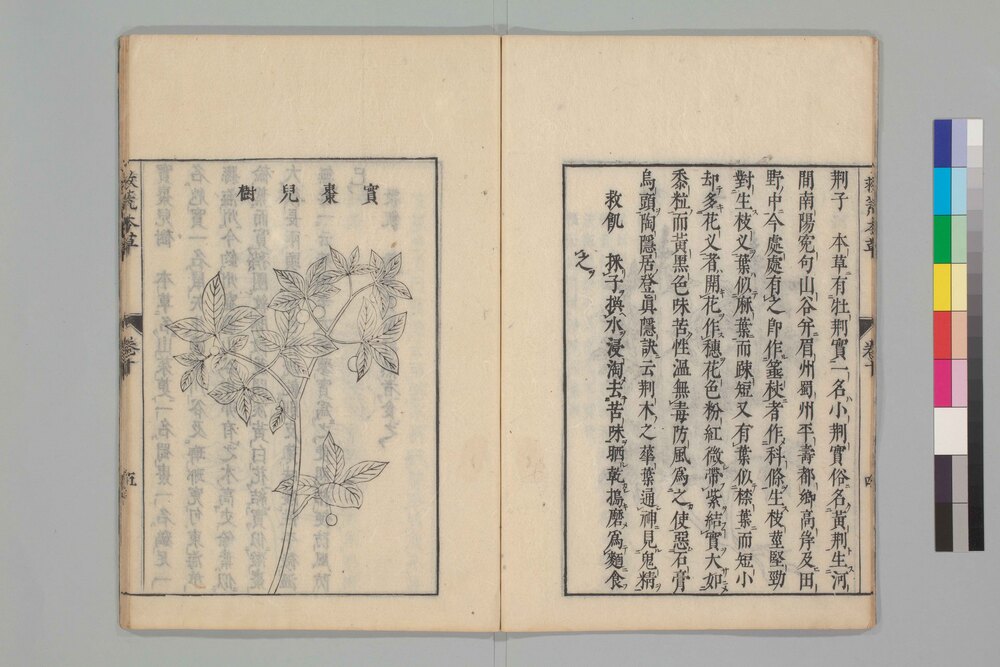 荆子　本草有牡荆實一名小荆實俗名黄荆生河
間南陽寃句山谷并眉州蜀州平壽都鄉高岸及田
野中今處處有之即作箠杖者作科條生枝莖堅勁
對生枝义葉似麻葉而疎短又有葉似檪葉而短小
却多花义者開花作穗花色粉紅微帶紫結實大如
黍粒而黄黒色味苦性溫無毒防風爲之使惡石膏
烏頭陶隱居登眞隱訣云荆木之華葉通神見鬼精
救飢　採子換水浸淘去苦味晒乾搗磨爲麵食
之
救荒本草
卷十
實棗兒樹
救荒本草
卷十
伍